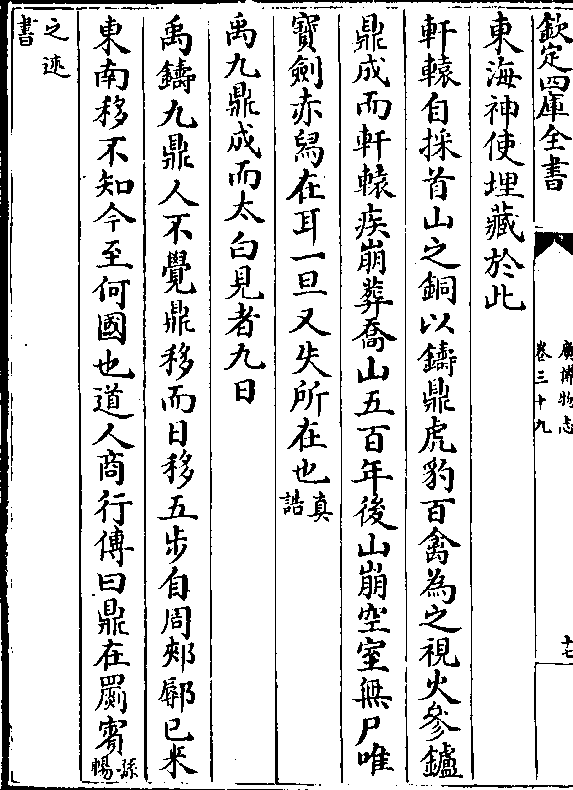 欽定四庫全書
廣博物志
卷三十九
十七
東海神使埋藏於此
軒轅自採首山之銅以鑄鼎虎豹百禽為之視火參鑪
鼎成而軒轅疾崩葬喬山五百年後山崩空室無尸唯
寶劍赤舄在耳一旦又失所在也真誥
禹九鼎成而太白見者九日
禹鑄九鼎人不覺鼎移而日移五步自周郟鄏已来
東南移不知今至何國也道人商行傳曰鼎在罽賓孫暢
之述書